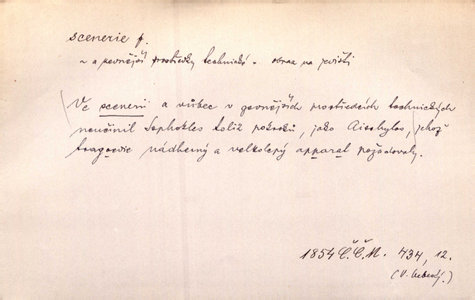 scenerie f.
~ a pevnější prostředky technické - obraz na jevišti
Ve scenerii a vůbec v pevnějších prostředcích technických
neučinil Sophokles tolik pokroků, jako Aieschylos, jehož
tragoedie nádherný a velkolepý apparat požadovaly.
1854 Č.Č.M. 434, 12.
(V.